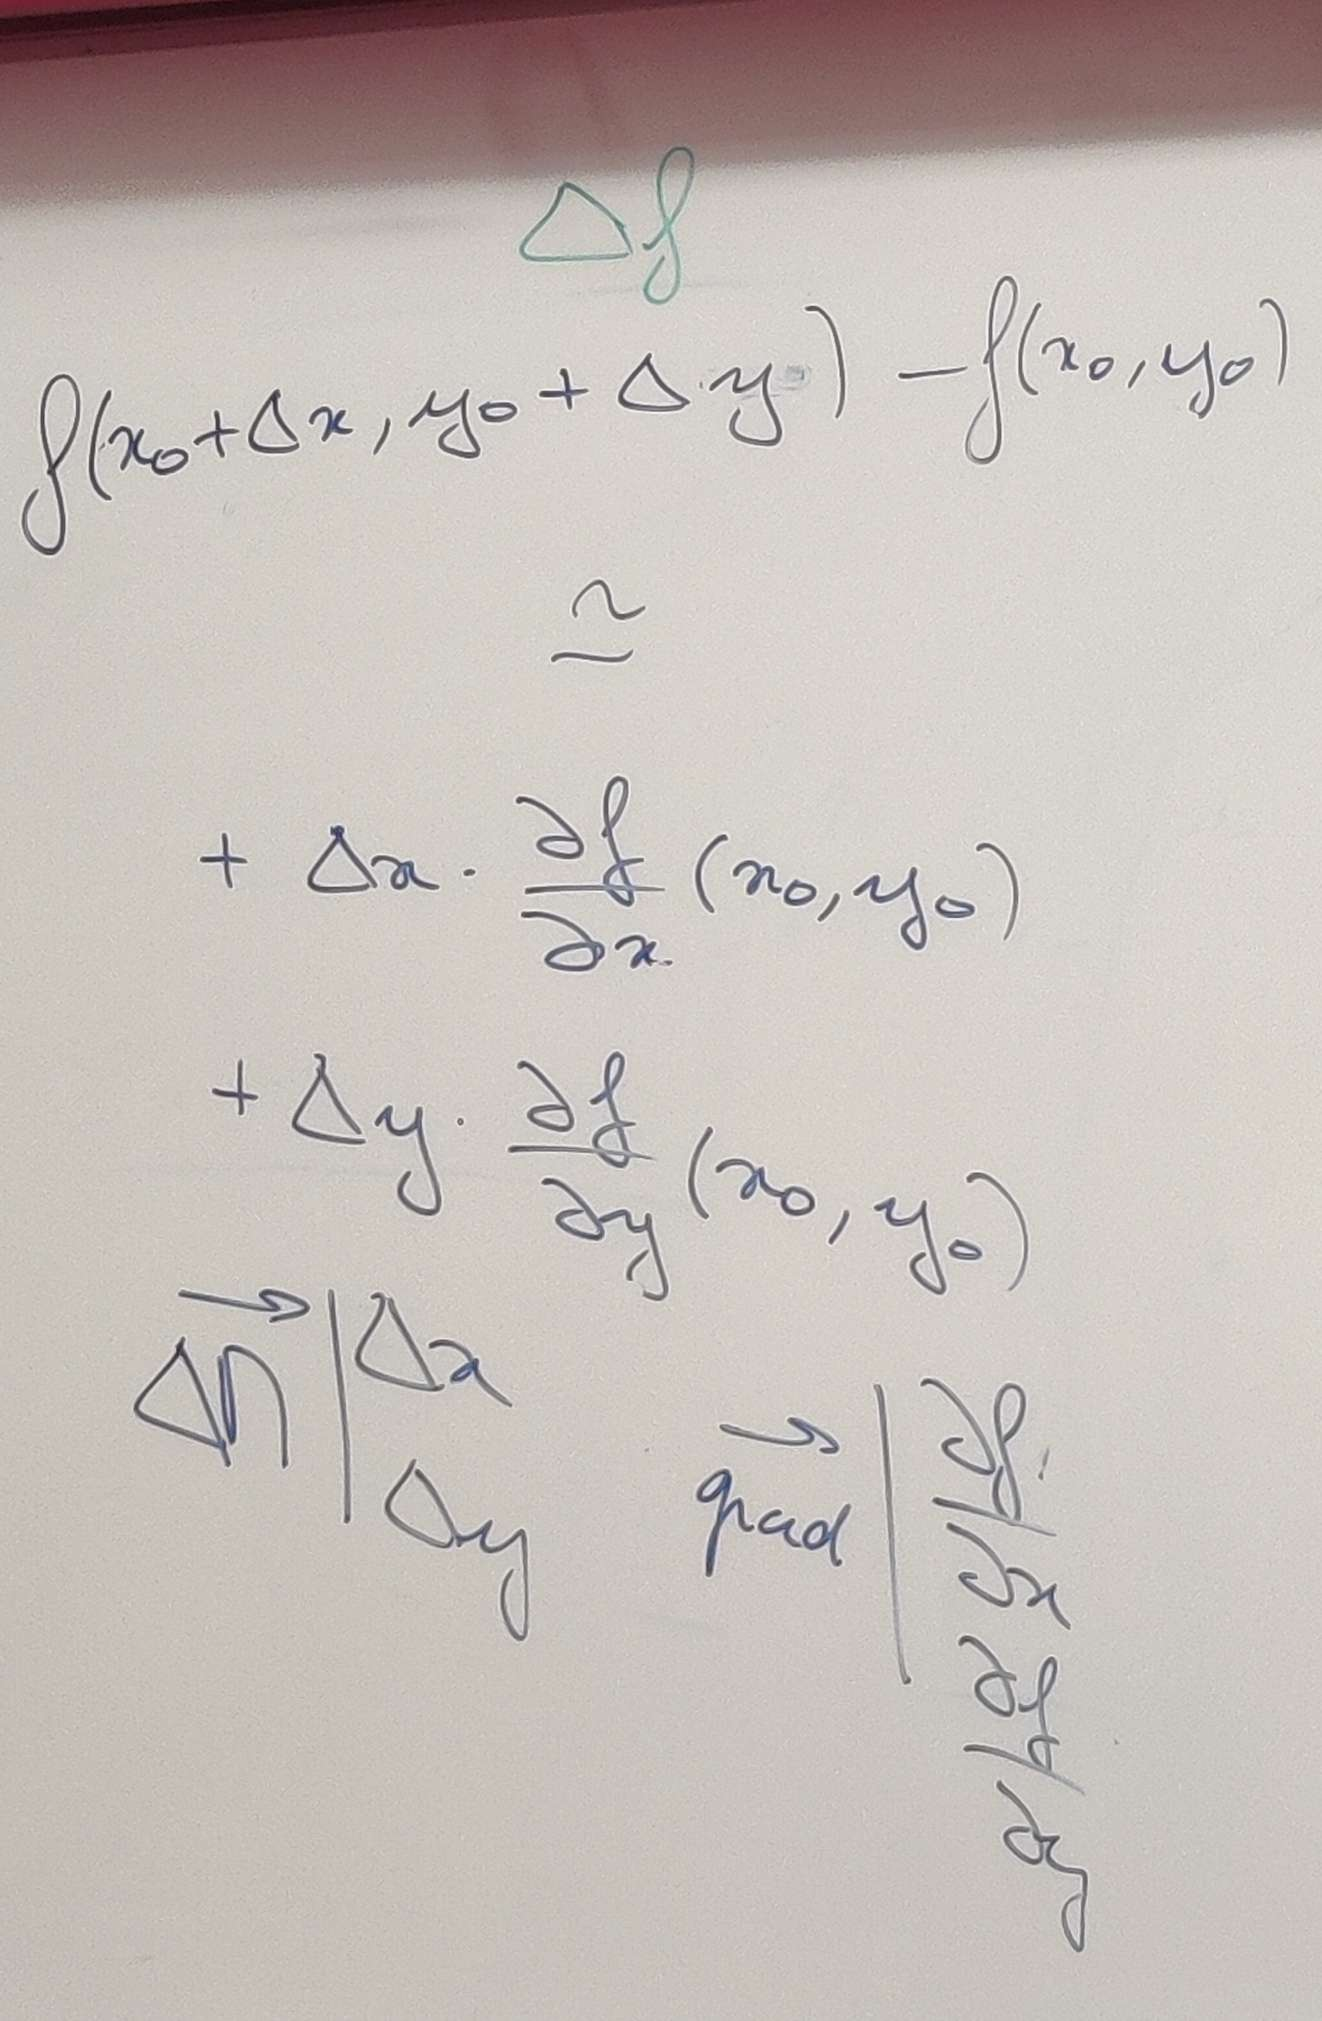 Δf
f(x₀+Δx, y₀+Δy) − f(x₀, y₀)
≃
+ Δx · ∂f/∂x (x₀, y₀)
+ Δy · ∂f/∂y (x₀, y₀)
ΔM⃗ | Δx
Δy
grad⃗ | ∂f/∂x
∂f/∂y